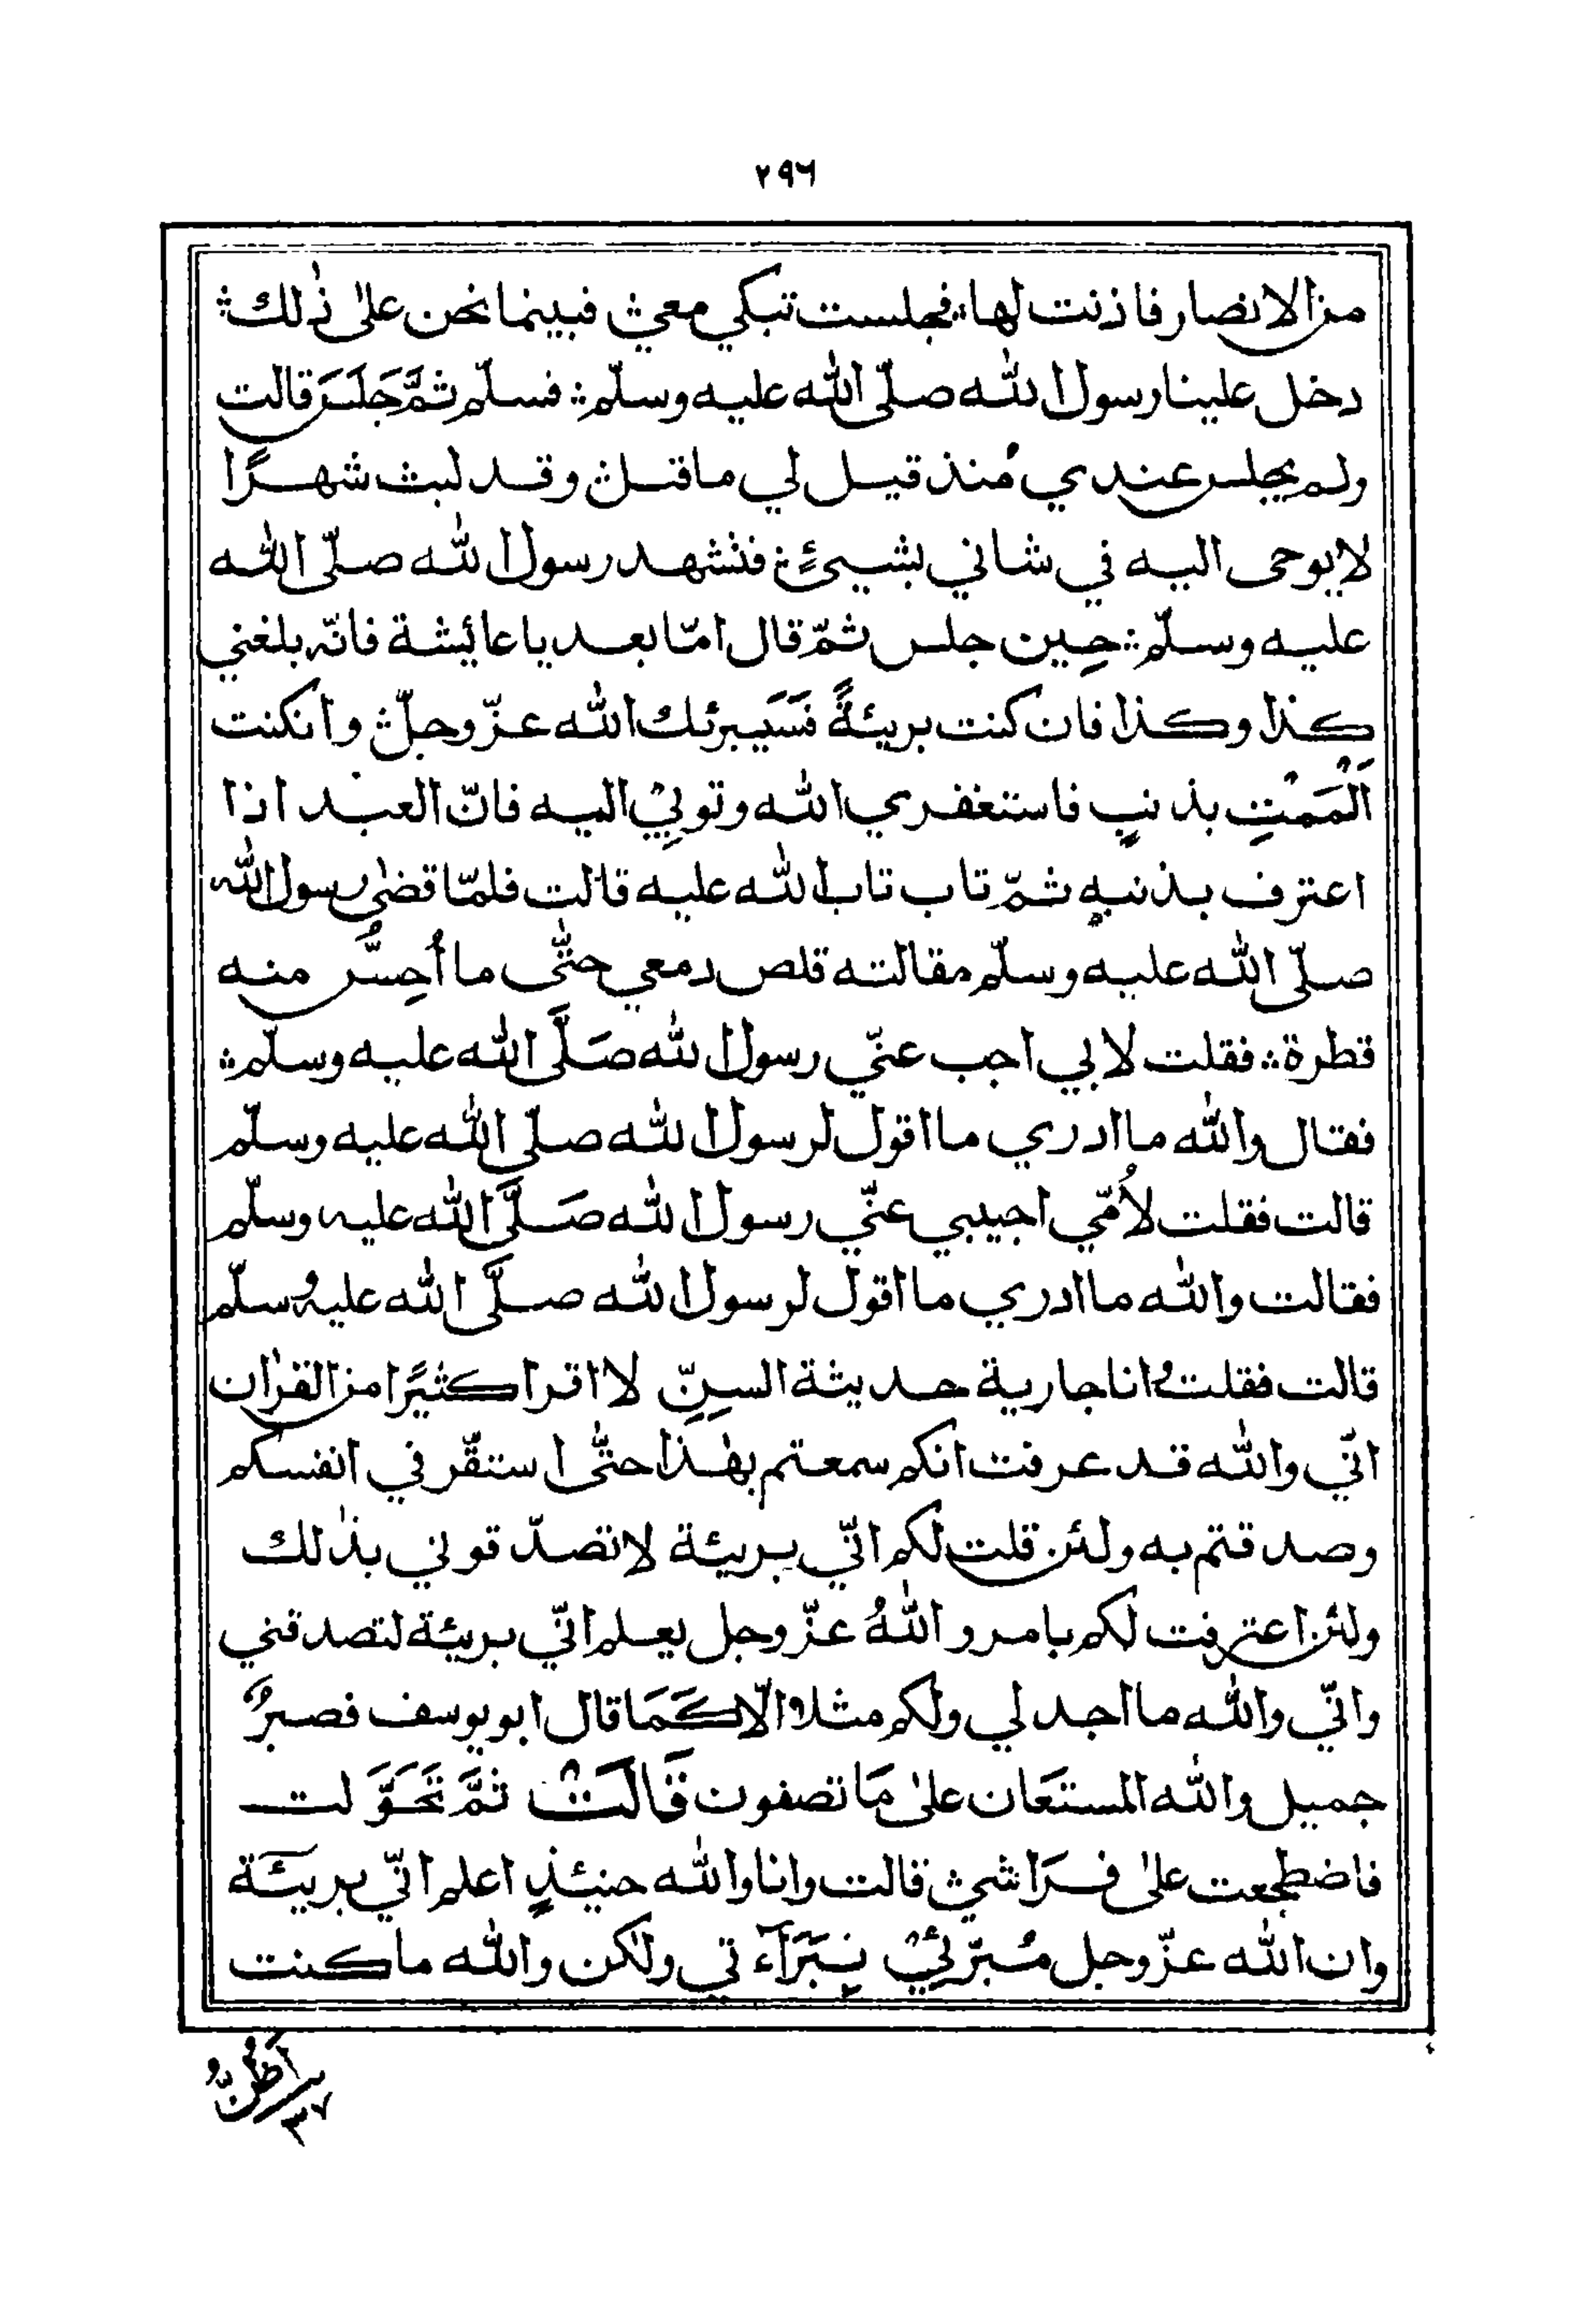 ٢٩٦
من الانصار فاذنت لها؛ فجلست تبكي معي؛ فبينما نحن على ذٰلك؛
دخل علينا رسول الله صلّى الله عليه وسلّم؛ فسلّم ثمَّ جَلَسَ قالت
ولم يجلس عندي مُنذ قيل لي ما قيل؛ وقد لبث شهرًا
لا يوحى اليه في شاني بشيىءٍ؛ فتشهد رسول الله صلّى الله
عليه وسلّم؛ حِين جلس ثمّ قال امّا بعد يا عائيشة فانّه بلغني
كذا وكذا فان كنت بريئةً فَسَيَبرئك الله عزّ وجلّ؛ وانكنت
اَلْمَمْتِ بذنبٍ فاستغفري الله وتوبِيْ اليه فانّ العبد اذا
اعترف بذنبهِ ثمّ تاب تاب الله عليه قالت فلمّا قضٰى رسول الله
صلّى الله عليه وسلّم مقالته قلص دمعي حتّٰى ما اُحِسُّ منه
قطرة؛ فقلت لابي اجب عنّي رسول الله صَلَّى الله عليه وسلّم؛
فقال والله ما ادري ما اقول لرسول الله صلّى الله عليه وسلّم
قالت فقلت لاُمّي اجيبي عنّي رسول الله صَلَّى الله عليه وسلّم
فقالت والله ما ادري ما اقول لرسول الله صلَّى الله عليه وسلّم
قالت فقلت وانا جارية حديثة السِنِّ لا اقرا كثيرًا من القرٰان
انّي والله قد عرفت انكم سمعتم بهٰذا حتّٰى استقّر في انفسكم
وصدقتم به ولئن قلت لكم انّي بريئة لا تصدّقوني بذٰلك
ولئن اعترفت لكم بامر واللهُ عزّ وجل يعلم انّي بريئة لتصدقني
وانّي والله ما اجد لي ولكم مثلا الّا كَمَا قال ابو يوسف فصبرٌ
جميل والله المستعَان علىٰ مَا تصفون قَالَتْ ثمَّ تَحَوَّلت
فاضطجعت علىٰ فرَاشي؛ قالت وانا والله حنيئذٍ اعلم انّي بريئَة
وان الله عزّ وجل مُبرّئِيْ بِبَرَآءتي ولٰكن والله ما كنت
اَظُنُّ
٣٧